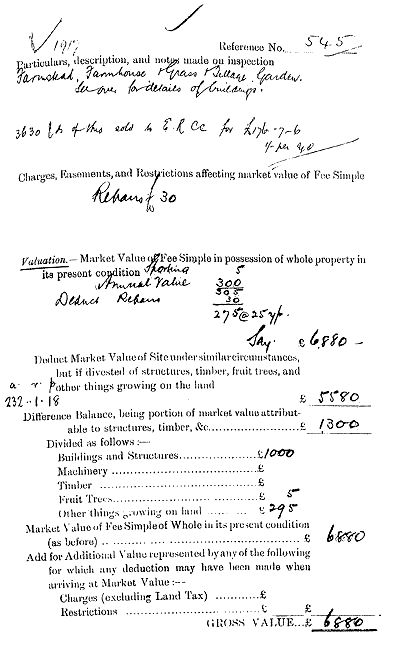 1917
Reference No. 545
Particulars, description, and notes made on inspection
Farmstead, Farmhouse & Grass & Tillage, Garden.
See over for details of buildings.
3630 of this sold to E.R.C.C. for £176-7-6
Charges, Easements, and Restrictions affecting market value of Fee Simple
Repairs £30
Valuation.—Market Value of Fee Simple in possession of whole property in
its present condition Sporting 5
Annual Value 300
305
Deduct Repairs 30
275 @ 25 yp.
Say. £6,880 —
Deduct Market Value of Site under similar circumstances,
but if divested of structures, timber, fruit trees, and
a r p other things growing on the land
232-1-18 £ 5580
Difference Balance, being portion of market value attribut-
able to structures, timber, &c. £ 1300
Divided as follows :—
Buildings and Structures £1000
Machinery £
Timber £
Fruit Trees £ 5
Other things growing on land £ 295
Market Value of Fee Simple of Whole in its present condition
(as before) £ 6880
Add for Additional Value represented by any of the following
for which any deduction may have been made when
arriving at Market Value :—
Charges (excluding Land Tax) £
Restrictions £ £
GROSS VALUE...£ 6880